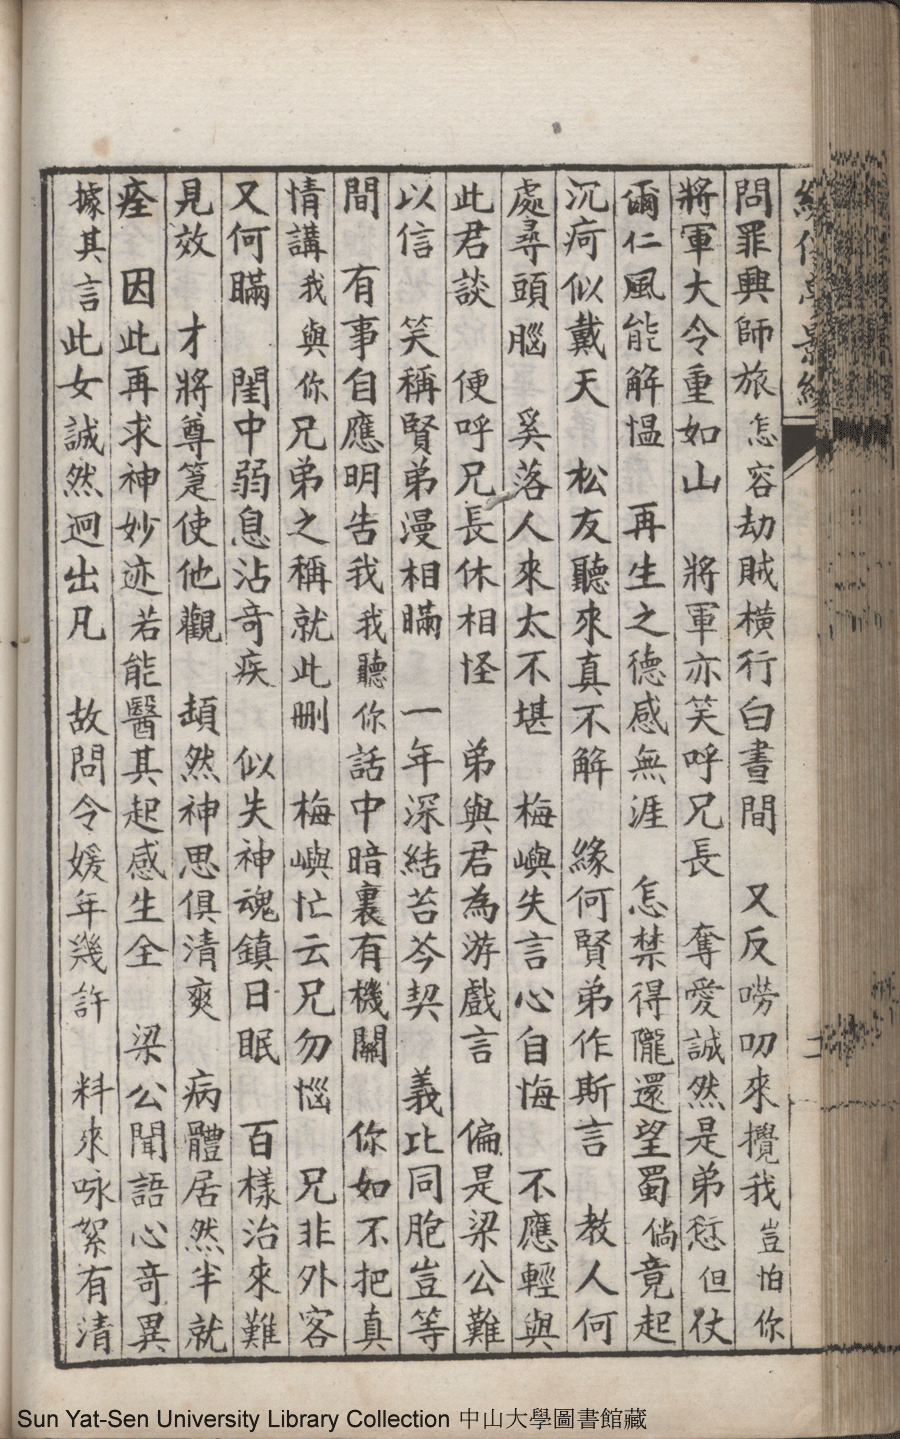 問罪興師旅 怎容劫賊橫行白晝間 又反嘮叨來攪我豈怕你
將軍大令重如山 將軍亦笑呼兄長 奪愛誠然是弟愆但仗
爾仁風能解愠 再生之德感無涯 怎禁得隴還望蜀倘竟起
沉疴似戴天 松友聽來真不解 緣何賢弟作斯言 教人何
處尋頭腦 奚落人來太不堪 梅嶼失言心自悔 不應輕與
此君談 便呼兄長休相怪 弟與君為游戲言 偏是梁公難
以信 笑稱賢弟漫相瞞 一年深結苔芩契 義比同胞豈等
間 有事自應明告我我聽你話中暗裏有機關 你如不把真
情講我與你兄弟之稱就此刪 梅嶼忙云兄勿惱 兄非外客
又何瞞 閨中弱息沾奇疾 似失神魂鎮日眠 百樣治來難
見效 才將尊箑使他觀 頓然神思俱清爽 病體居然半就
痊 因此再求神妙迹若能醫其起感生全 梁公聞語心奇異
據其言此女誠然迥出凡 故問令媛年幾許 料來咏絮有清
二
Sun Yat-Sen University Library Collection 中山大學圖書館藏